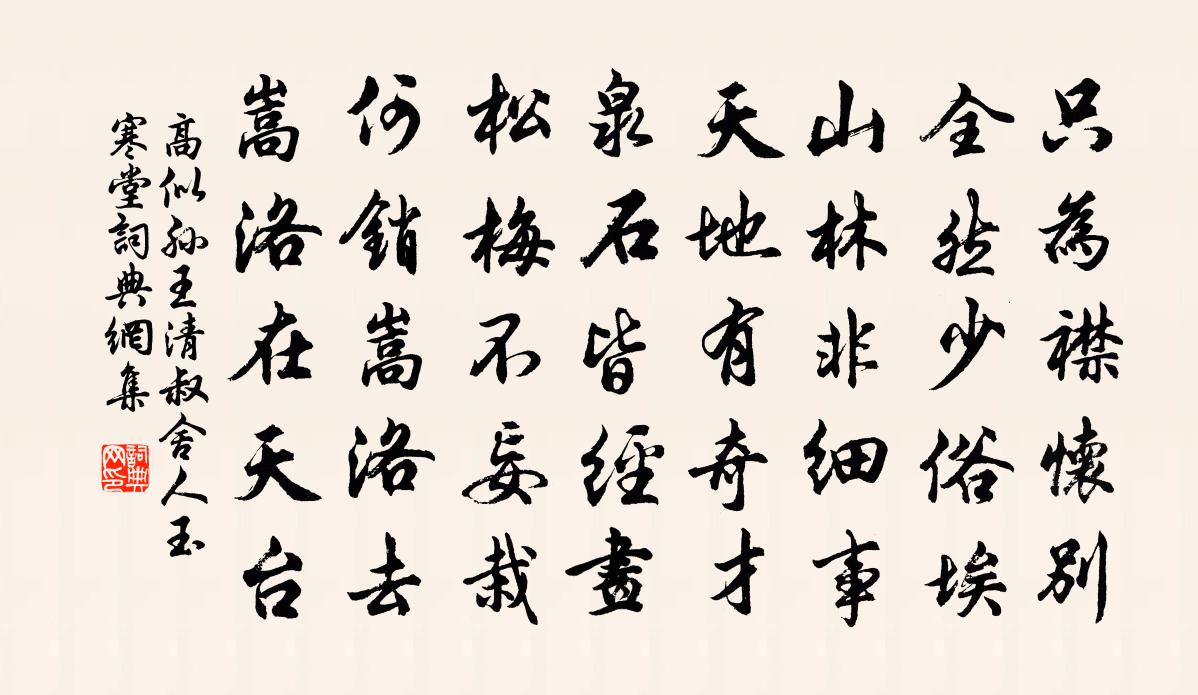 只為襟懷別
全然少俗埃
山林非細事
天地有奇才
泉石皆經畫
松梅不妄栽
何銷嵩洛去
嵩洛在天台
高似孫王清叔舍人玉
寒堂詞典網集
詞典網印